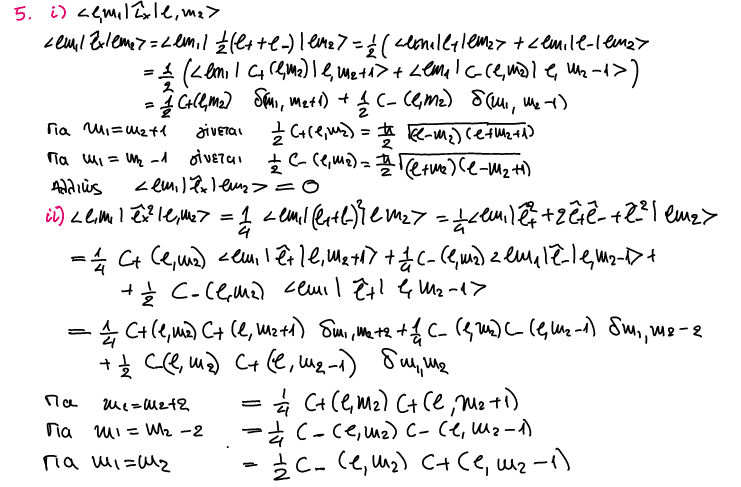 5. i) <l,m₁|l̂ₓ|l,m₂>
<lm₁|l̂ₓ|lm₂> = <lm₁| ½(l₊+l₋)|lm₂> = ½(<lm₁|l₊|lm₂> + <lm₁|l₋|lm₂>
= ½ (<lm₁| C₊(l,m₂)|l,m₂+1> + <lm₁| C₋(l,m₂)| l, m₂-1>)
= ½ C₊(l,m₂) δ(m₁, m₂+1) + ½ C₋ (l,m₂) δ(m₁, m₂-1)
Για m₁=m₂+1 δίνεται ½ C₊(l,m₂) = ħ/2 √(l-m₂)(l+m₂+1)
Για m₁= m₂-1 δίνεται ½ C₋(l,m₂) = ħ/2 √(l+m₂)(l-m₂+1)
Αλλιώς <lm₁|l̂ₓ|lm₂> = 0
ii) <l,m₁|l̂ₓ²|l,m₂> = ¼ <lm₁|(l₊+l₋)²|lm₂> = ¼<lm₁|l̂₊²+2l̂₊l̂₋+l̂₋²|lm₂>
= ¼ C₊(l,m₂) <lm₁|l̂₊|l,m₂+1> + ¼ C₋(l,m₂) <lm₁|l̂₋|l,m₂-1> +
+ ½ C₋(l,m₂) <lm₁| l̂₊| l, m₂-1>
= ¼ C₊(l,m₂) C₊(l,m₂+1) δm₁,m₂+2 + ¼ C₋(l,m₂) C₋(l,m₂-1) δm₁,m₂-2
+ ½ C₋(l,m₂) C₊(l,m₂-1) δm₁,m₂
Για m₁=m₂+2 = ¼ C₊(l,m₂) C₊(l,m₂+1)
Για m₁=m₂-2 = ¼ C₋(l,m₂) C₋(l,m₂-1)
Για m₁=m₂ = ½ C₋(l,m₂) C₊(l,m₂-1)